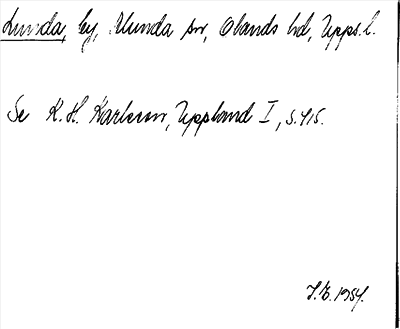 Lunda, by, Alunda sn, Olands hd, Upps. l.
Se K. H. Karlsson, Uppland I, s. 415.
1954.